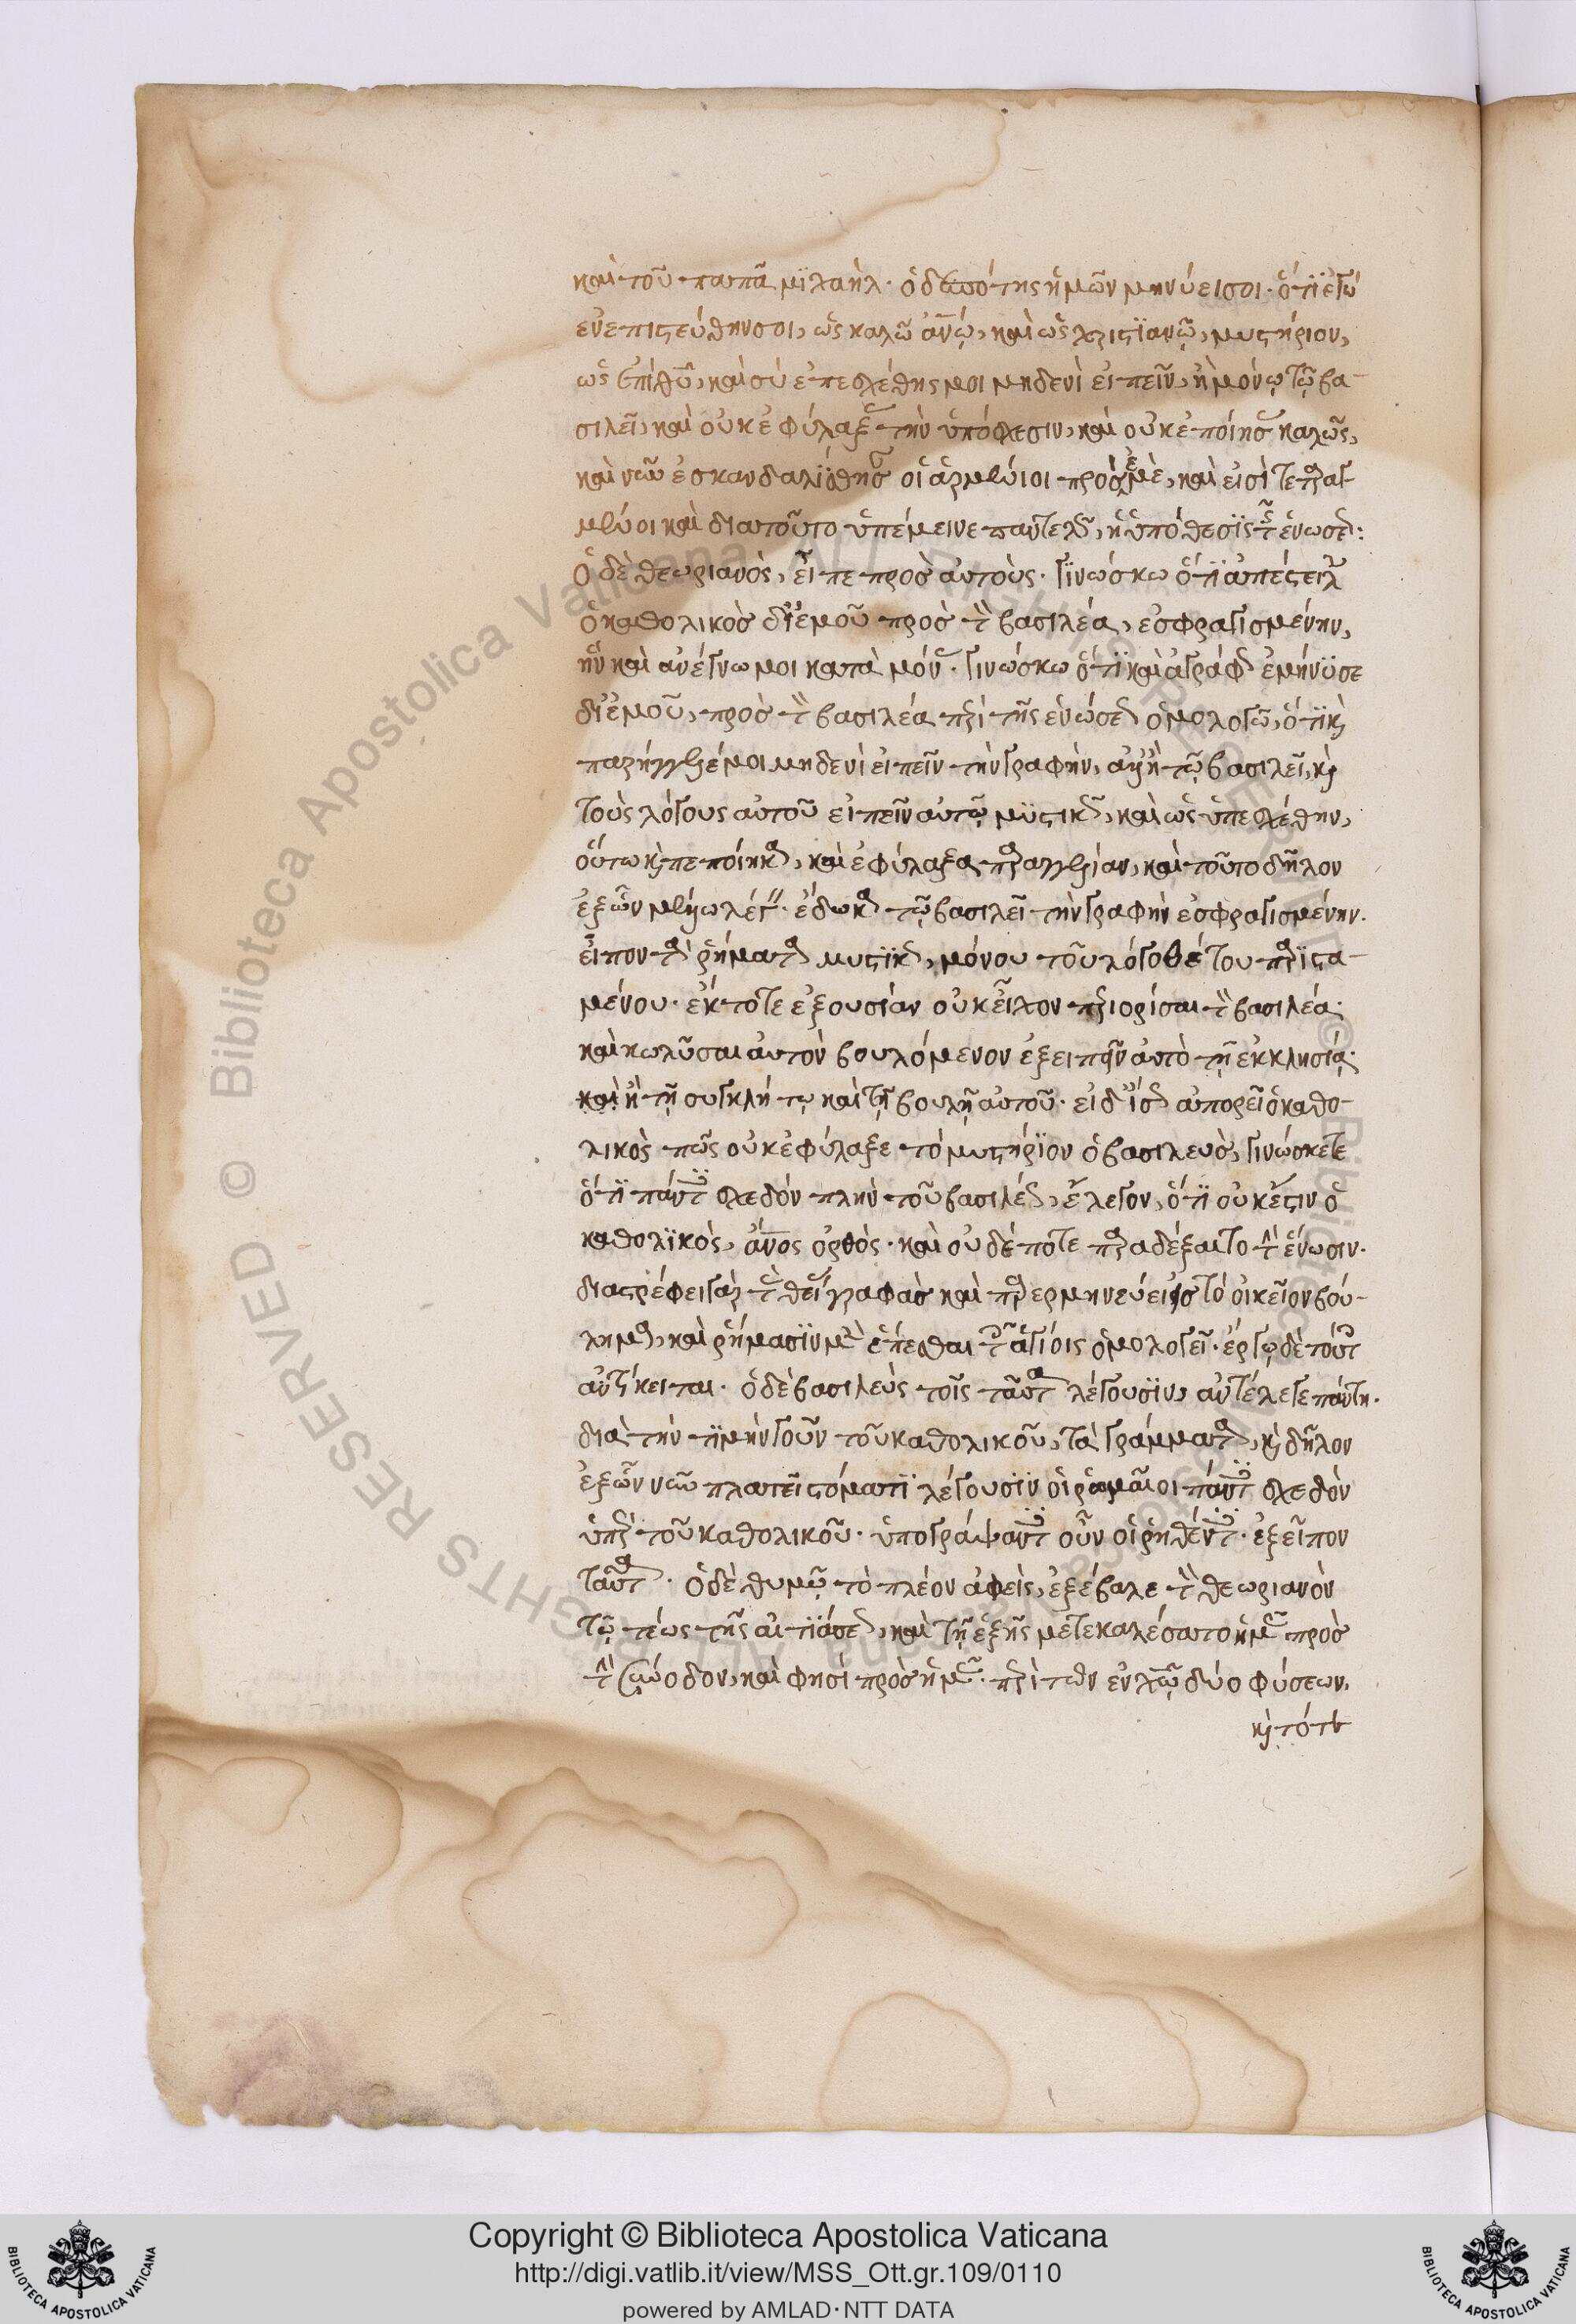 καὶ τοῦ παπᾶ μϊχαήλ· ὁ δεσπότης ἡμῶν μηνύει σοι· ὅτι ἐγὼ
ἐνεπιστεύθην σοι, ὡς καλῶ ἀνῷ, καὶ ὡς χριστϊανῷ, μυστήριον,
καὶ σὺ ὑπεσχέθης μοι μηδενὶ εἰπεῖν, ἢ μόνῳ τῷ βα-
σιλεῖ, καὶ οὐκ ἐφύλαξας τὴν ὑπόσχεσιν, καὶ οὐκ ἐποίησας καλῶς,
καὶ νῦν ἐσκανδαλίσθησαν οἱ ἀρμένιοι πρὸς ἐμὲ, καὶ εἰσὶ τεταραγ-
μένοι καὶ διατοῦτο ὑπέμεινε παντελῶς, ἡ ὑπόθεσϊς τῆς ἑνώσεως:
Ὁ δὲ θεωριανὸς, εἶπε πρὸς αὐτοὺς· γϊνώσκω ὅτϊ ἀπέστειλε
ὁ καθολικὸς δϊ' ἐμοῦ πρὸς τὸν βασιλέα, ἐσφραγισμένην,
ἣν καὶ ἀνέγνω μοι καταμόνας· γινώσκω ὅτϊ καὶ ἀγράφως ἐμήνϋσε
δι' ἐμοῦ, πρὸς τὸν βασιλέα περὶ τῆς ἑνώσεως ὁμολογῶ, ὅτϊ κὶ
παρήγγειλέ μοι μηδενὶ εἰπεῖν τὴν γραφὴν, ἀλλ' ἢ τῷ βασιλεῖ, κὶ
τοὺς λόγους αὐτοῦ εἰπεῖν αὐτῷ μϋστικῶς, καὶ ὡς ὑπεσχέθην,
οὕτω κὶ πεποίηκα, καὶ ἐφύλαξα παραγγελίαν, καὶ τοῦτο δῆλον
ἐξ ὧν μέλλω λέγειν· ἔδωκα τῷ βασιλεῖ τὴν γραφὴν ἐσφραγισμένην.
εἶπον τὰ ῥήματα μυστϊκῶς, μόνου τοῦ λογοθέτου παρϊστα-
μένου· ἐκ τότε ἐξουσίαν οὐκ εἶχον περιορίσαι τὸν βασιλέα·
καὶ κωλῦσαι αὐτὸν βουλόμενον ἐξειπεῖν αὐτὸ τῇ ἐκκλησίᾳ·
καὶ ἢ τῇ συγκλήτῳ καὶ τῇ βουλῇ αὐτοῦ· εἰ δ' ἴσως ἀπορεῖ ὁ καθο-
λικὸς πῶς οὐκ ἐφύλαξε τὸ μυστήρϊον ὁ βασιλεὺς, γινώσκετε
ὅτϊ πάντες σχεδὸν πλὴν τοῦ βασιλέως, ἔλεγον, ὅτϊ οὐκ ἔστιν ὁ
καθολϊκὸς, ἄνος ὀρθὸς· καὶ οὐδέποτε παραδέξαιτο τὴν ἕνωσιν.
διαστρέφει γὰρ τὰς θείας γραφὰς καὶ παρερμηνεύει εἰς τὸ οἰκεῖον βού-
λημα, καὶ ῥήμασϊν μὲν ἕπεσθαι τοῖς ἁγίοις ὁμολογεῖ· ἔργῳ δὲ τούτοις
ἀντίκειται· ὁ δὲ βασιλεὺς τοῖς ταῦτα λέγουσϊν, ἀντέλεγε πάντη.
διὰ τὴν τϊμὴν γοῦν τοῦ καθολικοῦ, τὰ γράμματα, κὶ δῆλον
ἐξ ὧν νῦν πλατεῖ στόματϊ λέγουσϊν οἱ ῥωμαῖοι πάντες σχεδὸν
ὑπὲρ τοῦ καθολικοῦ· ὑπογράψαντες οὖν οἱ ῥηθέντες· ἐξεῖπον
ταῦτα· Ὁ δὲ θυμῷ τὸ πλέον ἀφεὶς, ἐξέβαλε τὸν θεωριανὸν
τῷ τέως τῆς αἰτϊάσεως, καὶ τῇ ἑξῆς μετεκαλέσατο ἡμᾶς πρὸς
τὴν σύνοδον, καὶ φησὶ πρὸς ἡμᾶς· περὶ τῶν ἐν χῷ δύο φύσεων,
κὶ τότε
Copyright © Biblioteca Apostolica Vaticana
http://digi.vatlib.it/view/MSS_Ott.gr.109/0110
powered by AMLAD·NTT DATA